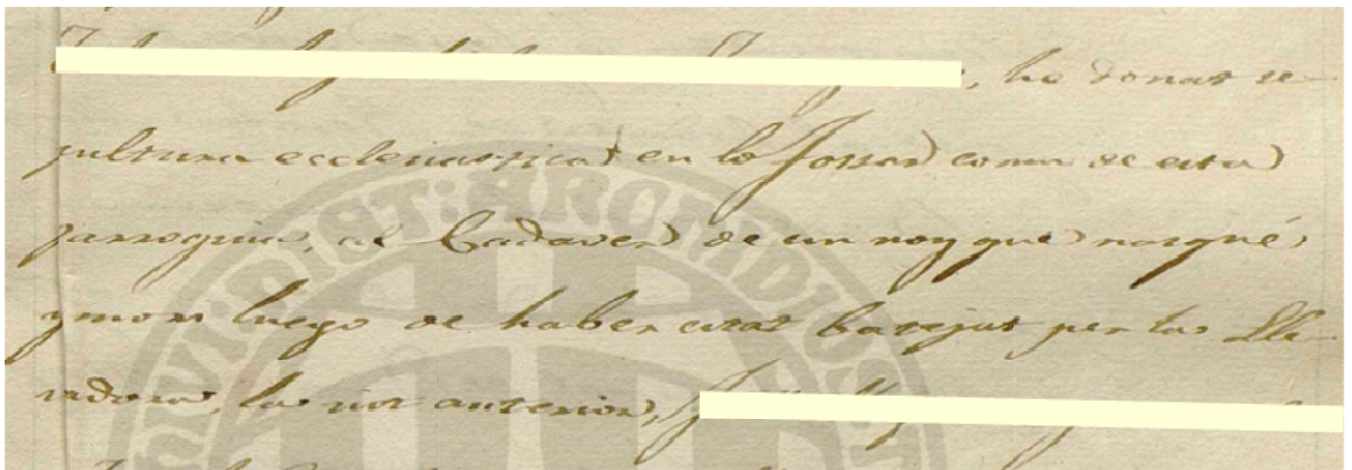 , he donat se-
pultura ecclesiastica en lo fossar comu de esta
parroquia, al Cadaver de un noy que nasqué,
y morí luego de haber estat batejat per la Lle-
vadora, la nit anterior,
ARXIU: DIST: ARCHIDIOC